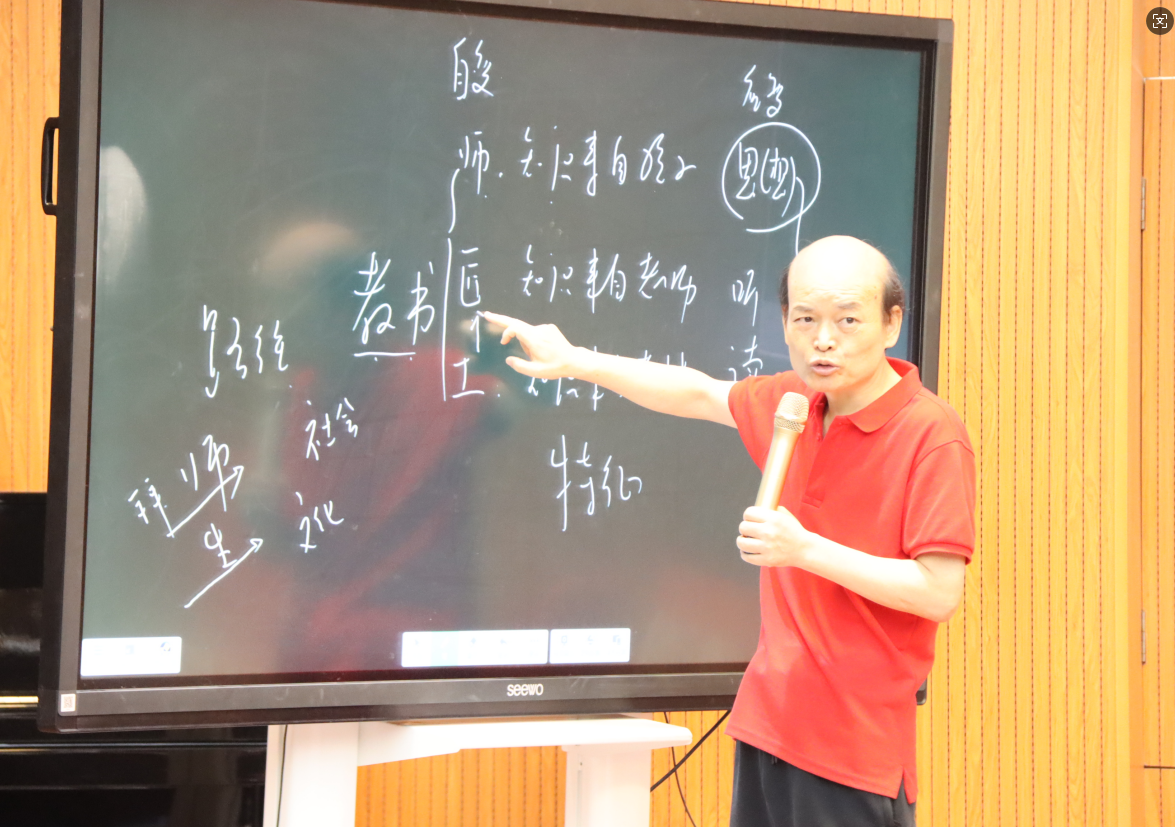 师.知识来自孩子
思想
匠 知识来自老师 听
教书
工. 读
路径
社会
特征
拜师
文化
生
seewo